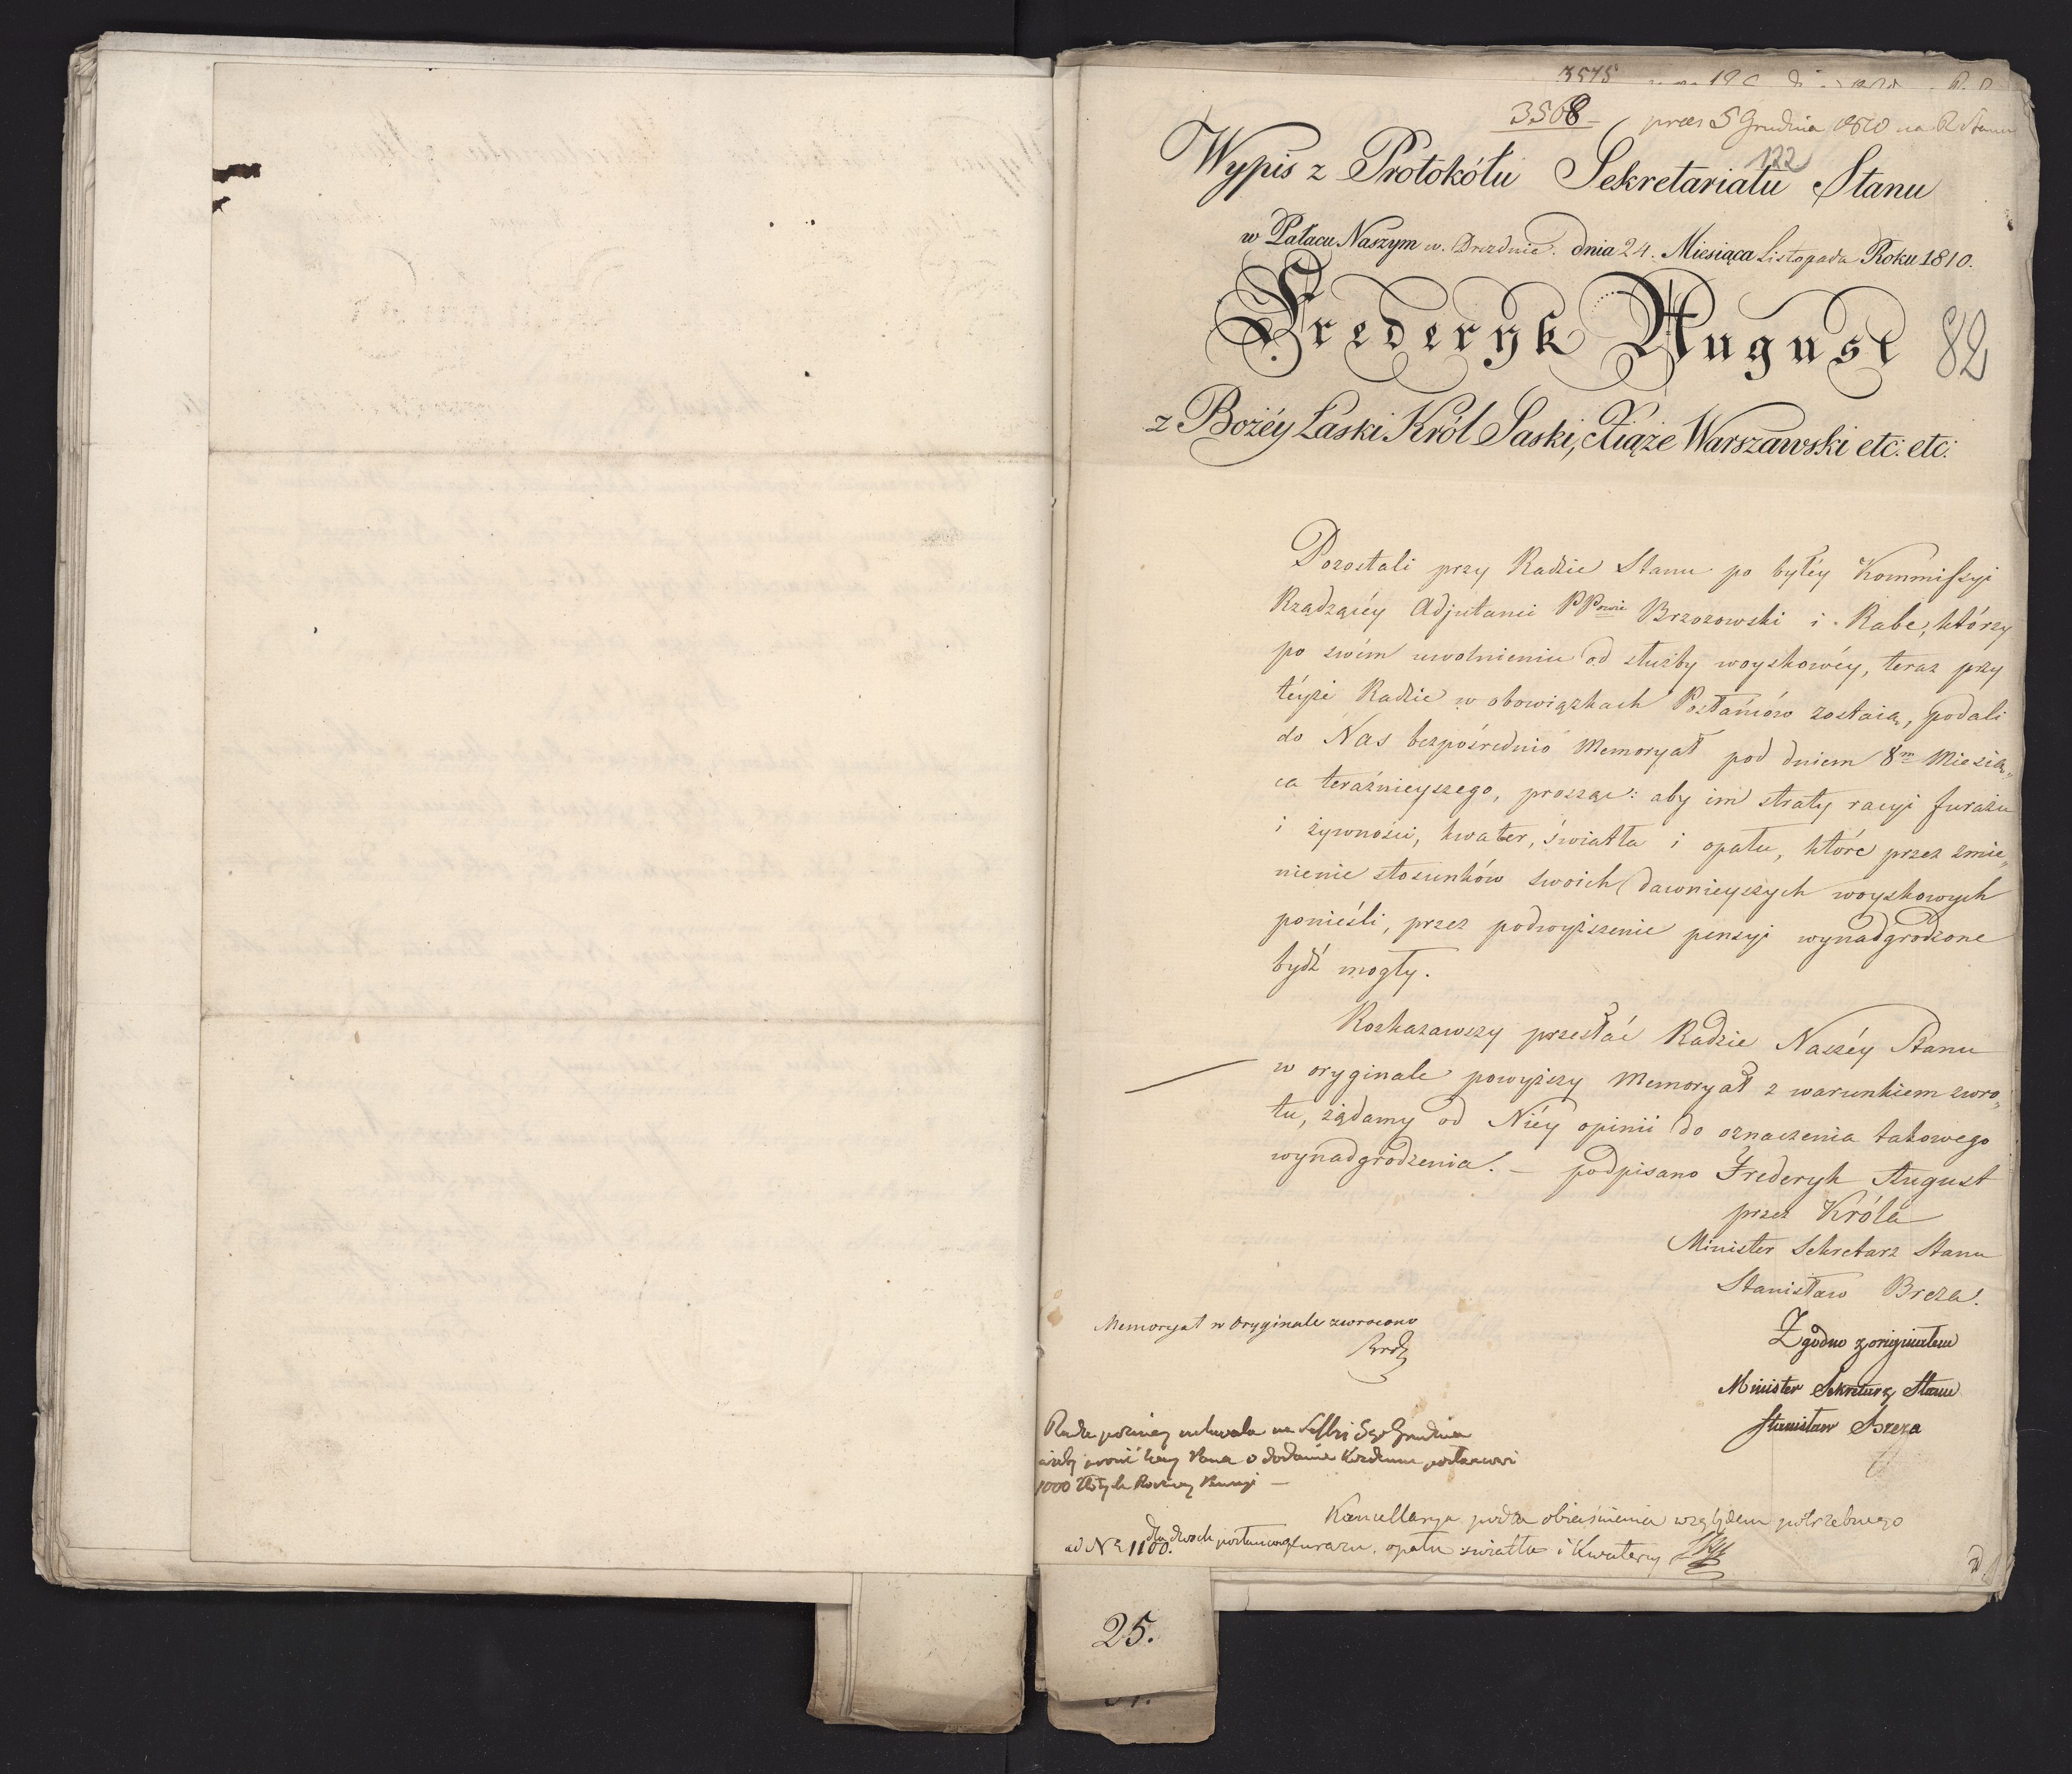 3575
3508
praes 5 Grudnia 1810 na R Stanu
122
Wypis z Protokółu Sekretariatu Stanu
w Pałacu Naszym w Dreznie. dnia 24. Miesiąca Listopada Roku 1810.
Frederyk August
82
z Bożéy Łaski Król Saski, Xiąże Warszawski etc: etc:
Pozostali przy Radzie Stanu po byłéy Kommissyi
Rządzącéy Adjutanci PPowie Brzozowski i Rabe, którzy
po swém uwolnieniu od służby woyskowéy, teraz przy
téyże Radzie w obowiązkach Posłańców zostaią, podali
do Nas bezpośrednio Memoryał pod dniem 8m Miesią„
ca teraźnieyszego, prosząc: aby im straty racyi furażu
i żywności, kwater, światła i opału, które przez zmie„
nienie stosunków swoich dawnieyszych woyskowych
ponieśli, przez podwyższenie pensyi wynadgrodzone
bydź mogły.
Rozkazawszy przesłać Radzie Naszéy Stanu
w oryginale powyższy Memoryał z warunkiem zwro„
tu, żądamy od Niéy opinii do oznaczenia takowego
wynadgrodzenia. – podpisano Frederyk August
przez Króla
Minister Sekretarz Stanu
Stanisław Breza.
Memoryał w Oryginale zwrocono
Zgodno z originałem
Minister Sekretarz Stanu
Stanisław Breza
Rada uchwała na Sessyi 5go Grudnia
ażeby prosić Pana o dodanie każdemu posłancowi
1000 Złotych Pensyi –
Kancellarya poda obiaśnienia względem potrzebnego
dla dwoch posłancow furażu, opału światła i Kwatery
ad Nr 1100.
25.